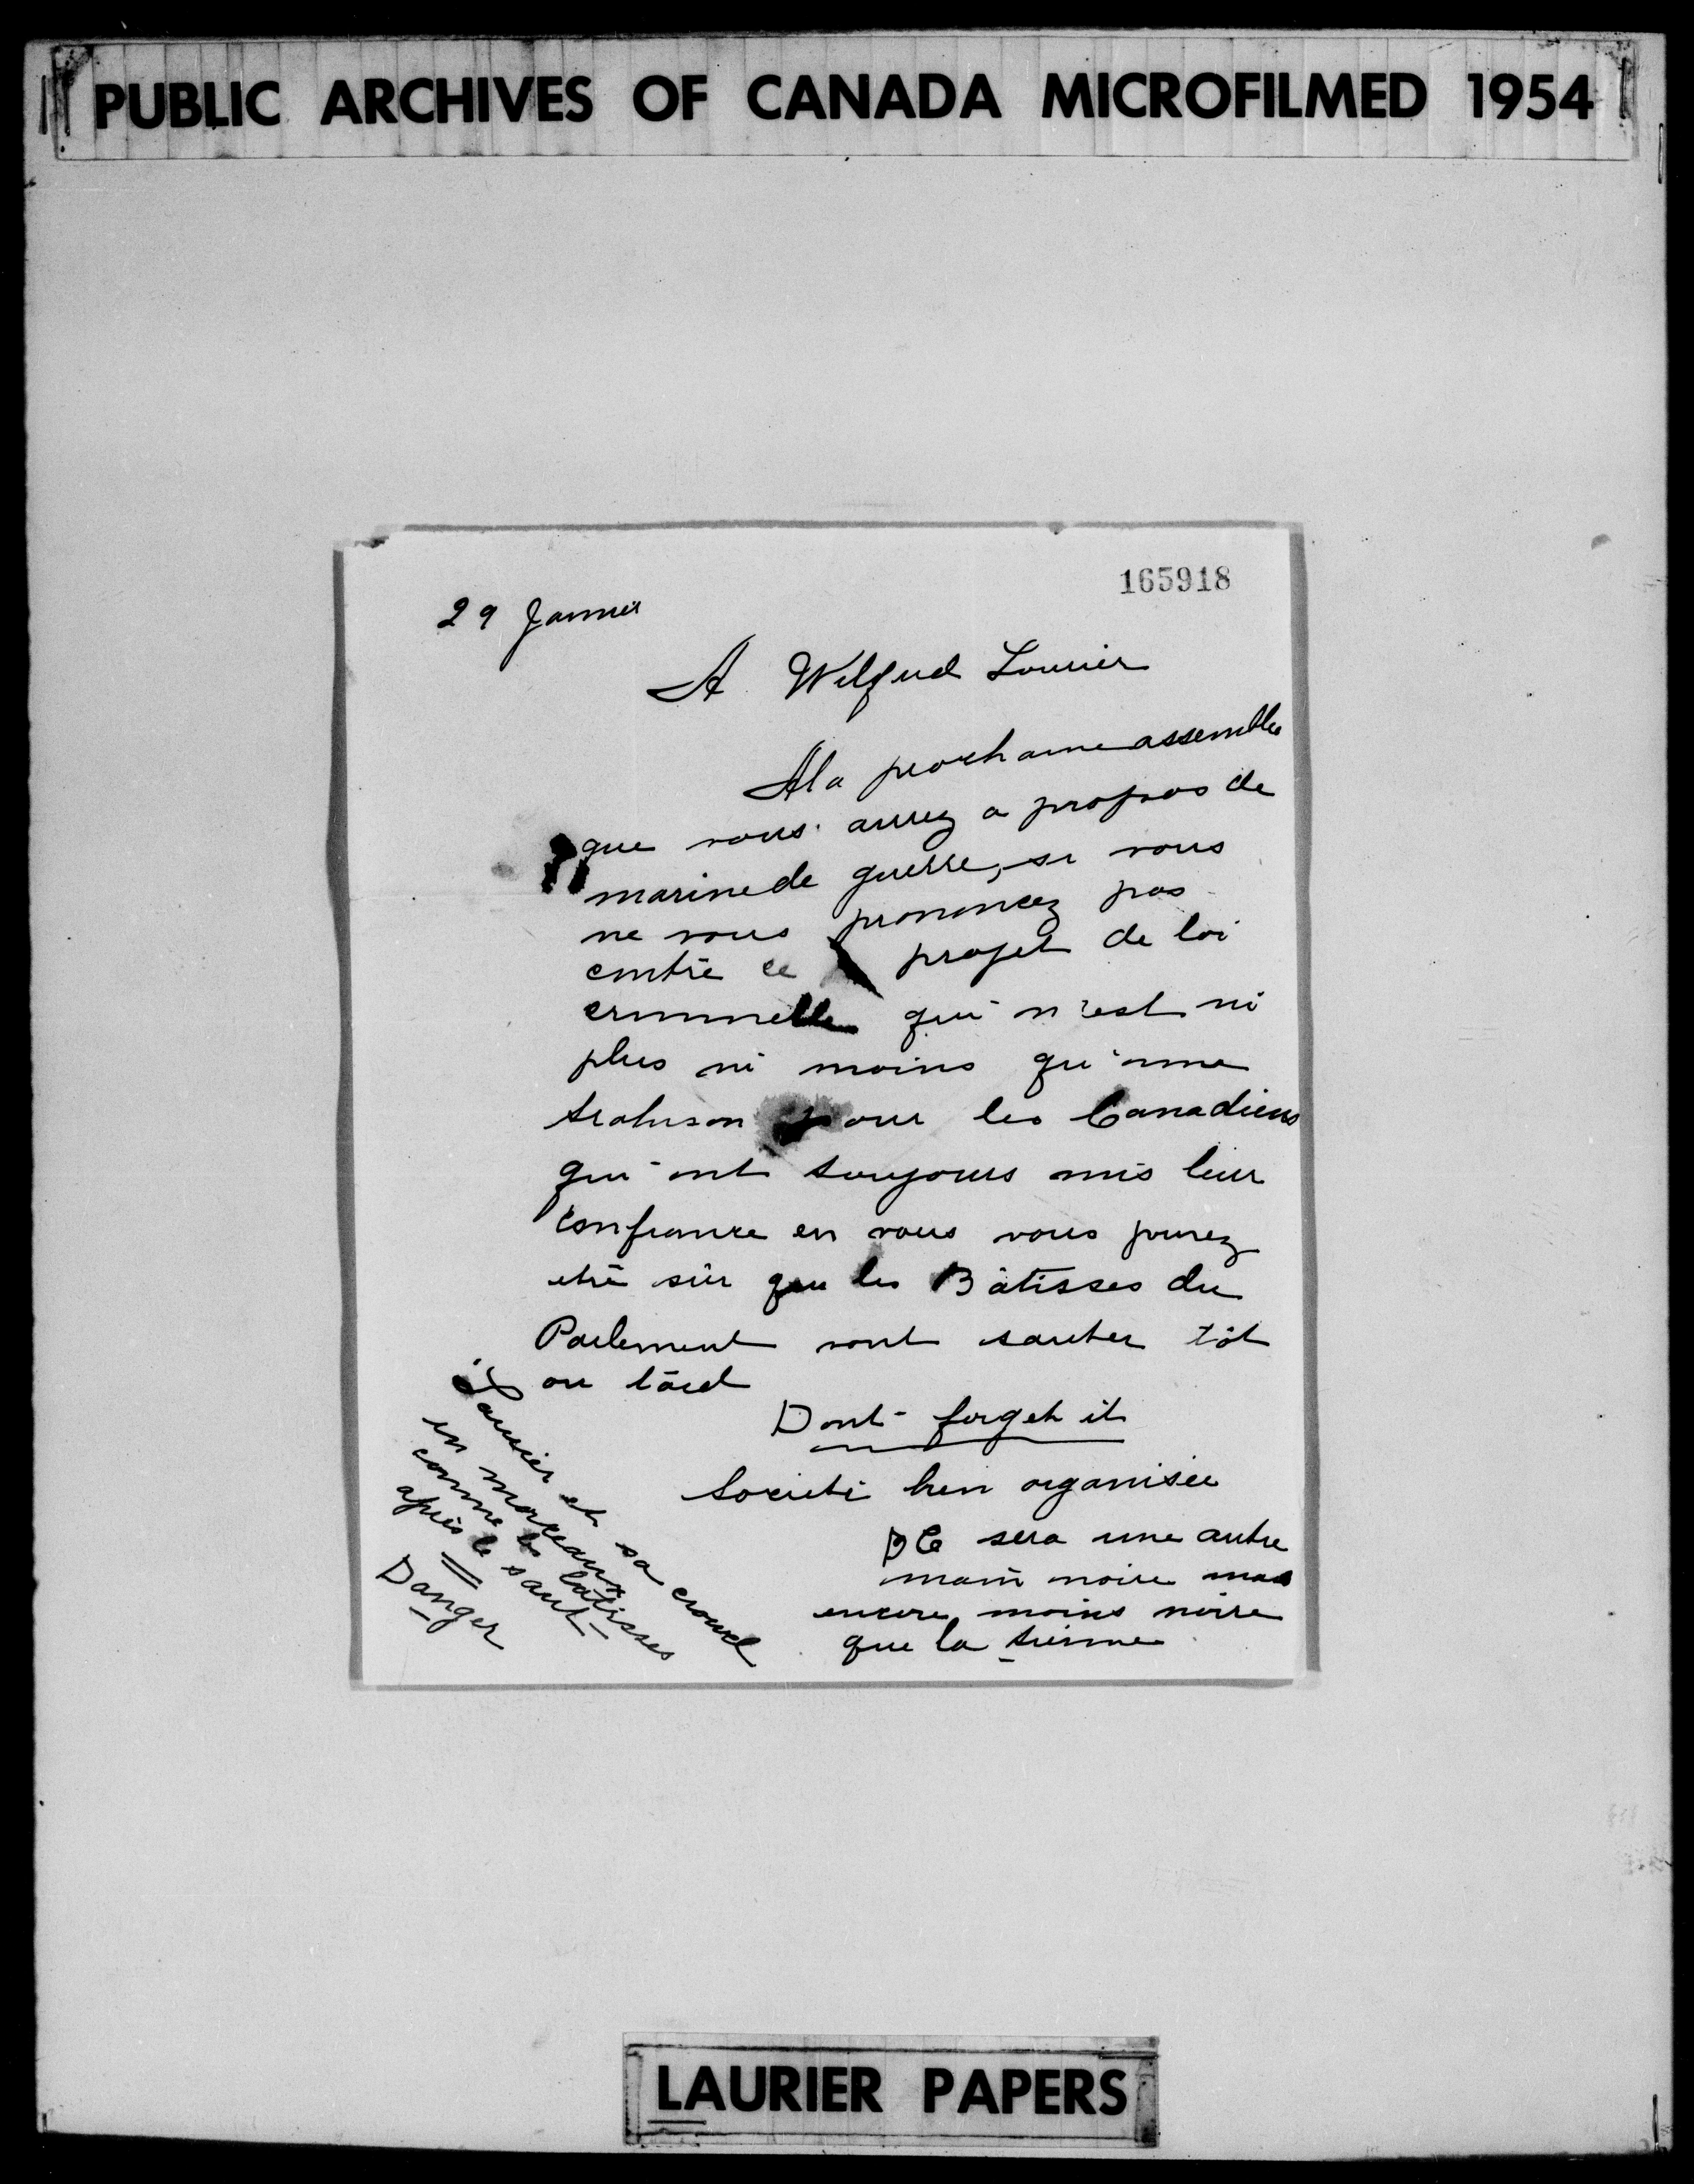 PUBLIC ARCHIVES OF CANADA MICROFILMED 1954
165918
29 Janvier
A Wilfrid Laurier
A la prochaine assemblee
que vous aurez a propos de
marine de guerre, si vous
ne vous prononcez pas
contre ce projet de loi
criminelle qui n'est ni
plus ni moins qu'une
trahison pour les Canadiens
qui ont toujours mis leur
confiance en vous vous pourez
etre sûr que les Bâtisses du
Parlement vont sauter tôt
ou tard
Dont forget it
Societé bien organisée
Ce sera une autre
main noire mais
encore moins noire
que la tienne
Laurier et sa crowd
en morceaux
comme les bâtisses
après le saut
Danger
LAURIER PAPERS